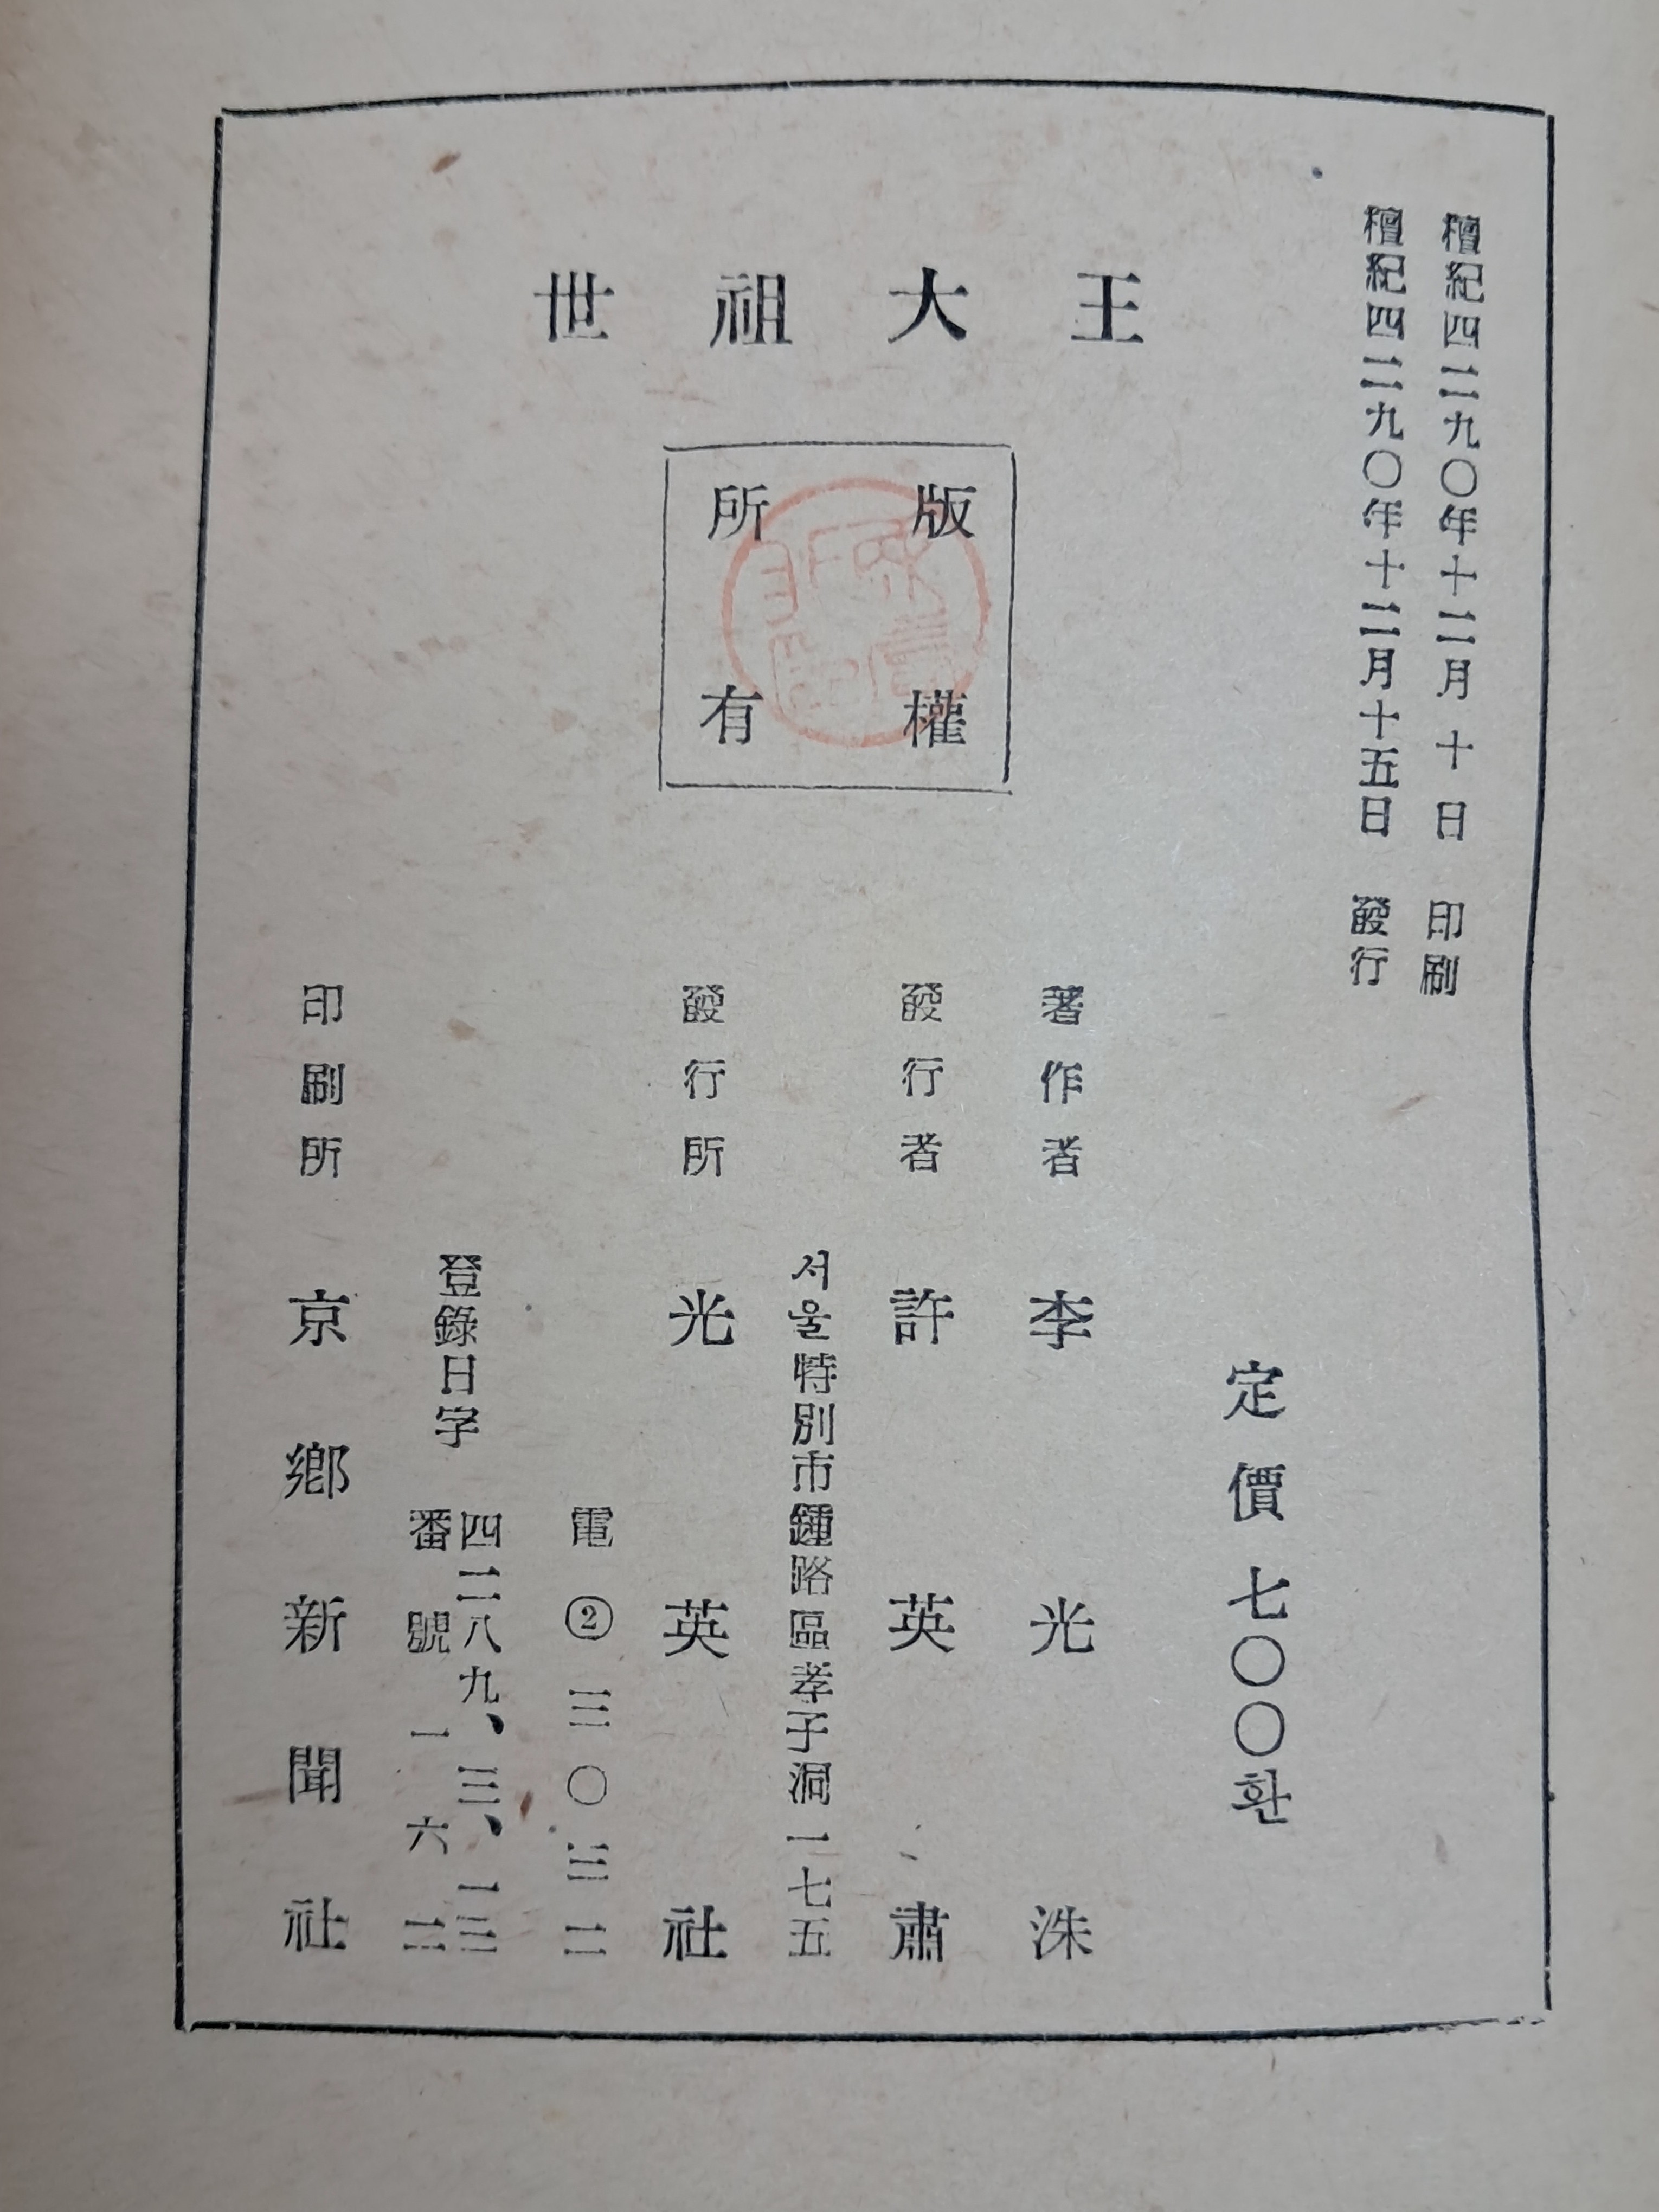 檀紀四二九〇年十二月十日 印刷
檀紀四二九〇年十二月十五日 發行
世祖大王
版權
所有
定價 七〇〇환
著作者 李光洙
發行者 許英肅
서울特別市鍾路區孝子洞一七五
發行所 光英社
電②三〇三二
登錄日字 四二八九、三、一三
番號 一六二
印刷所 京鄕新聞社